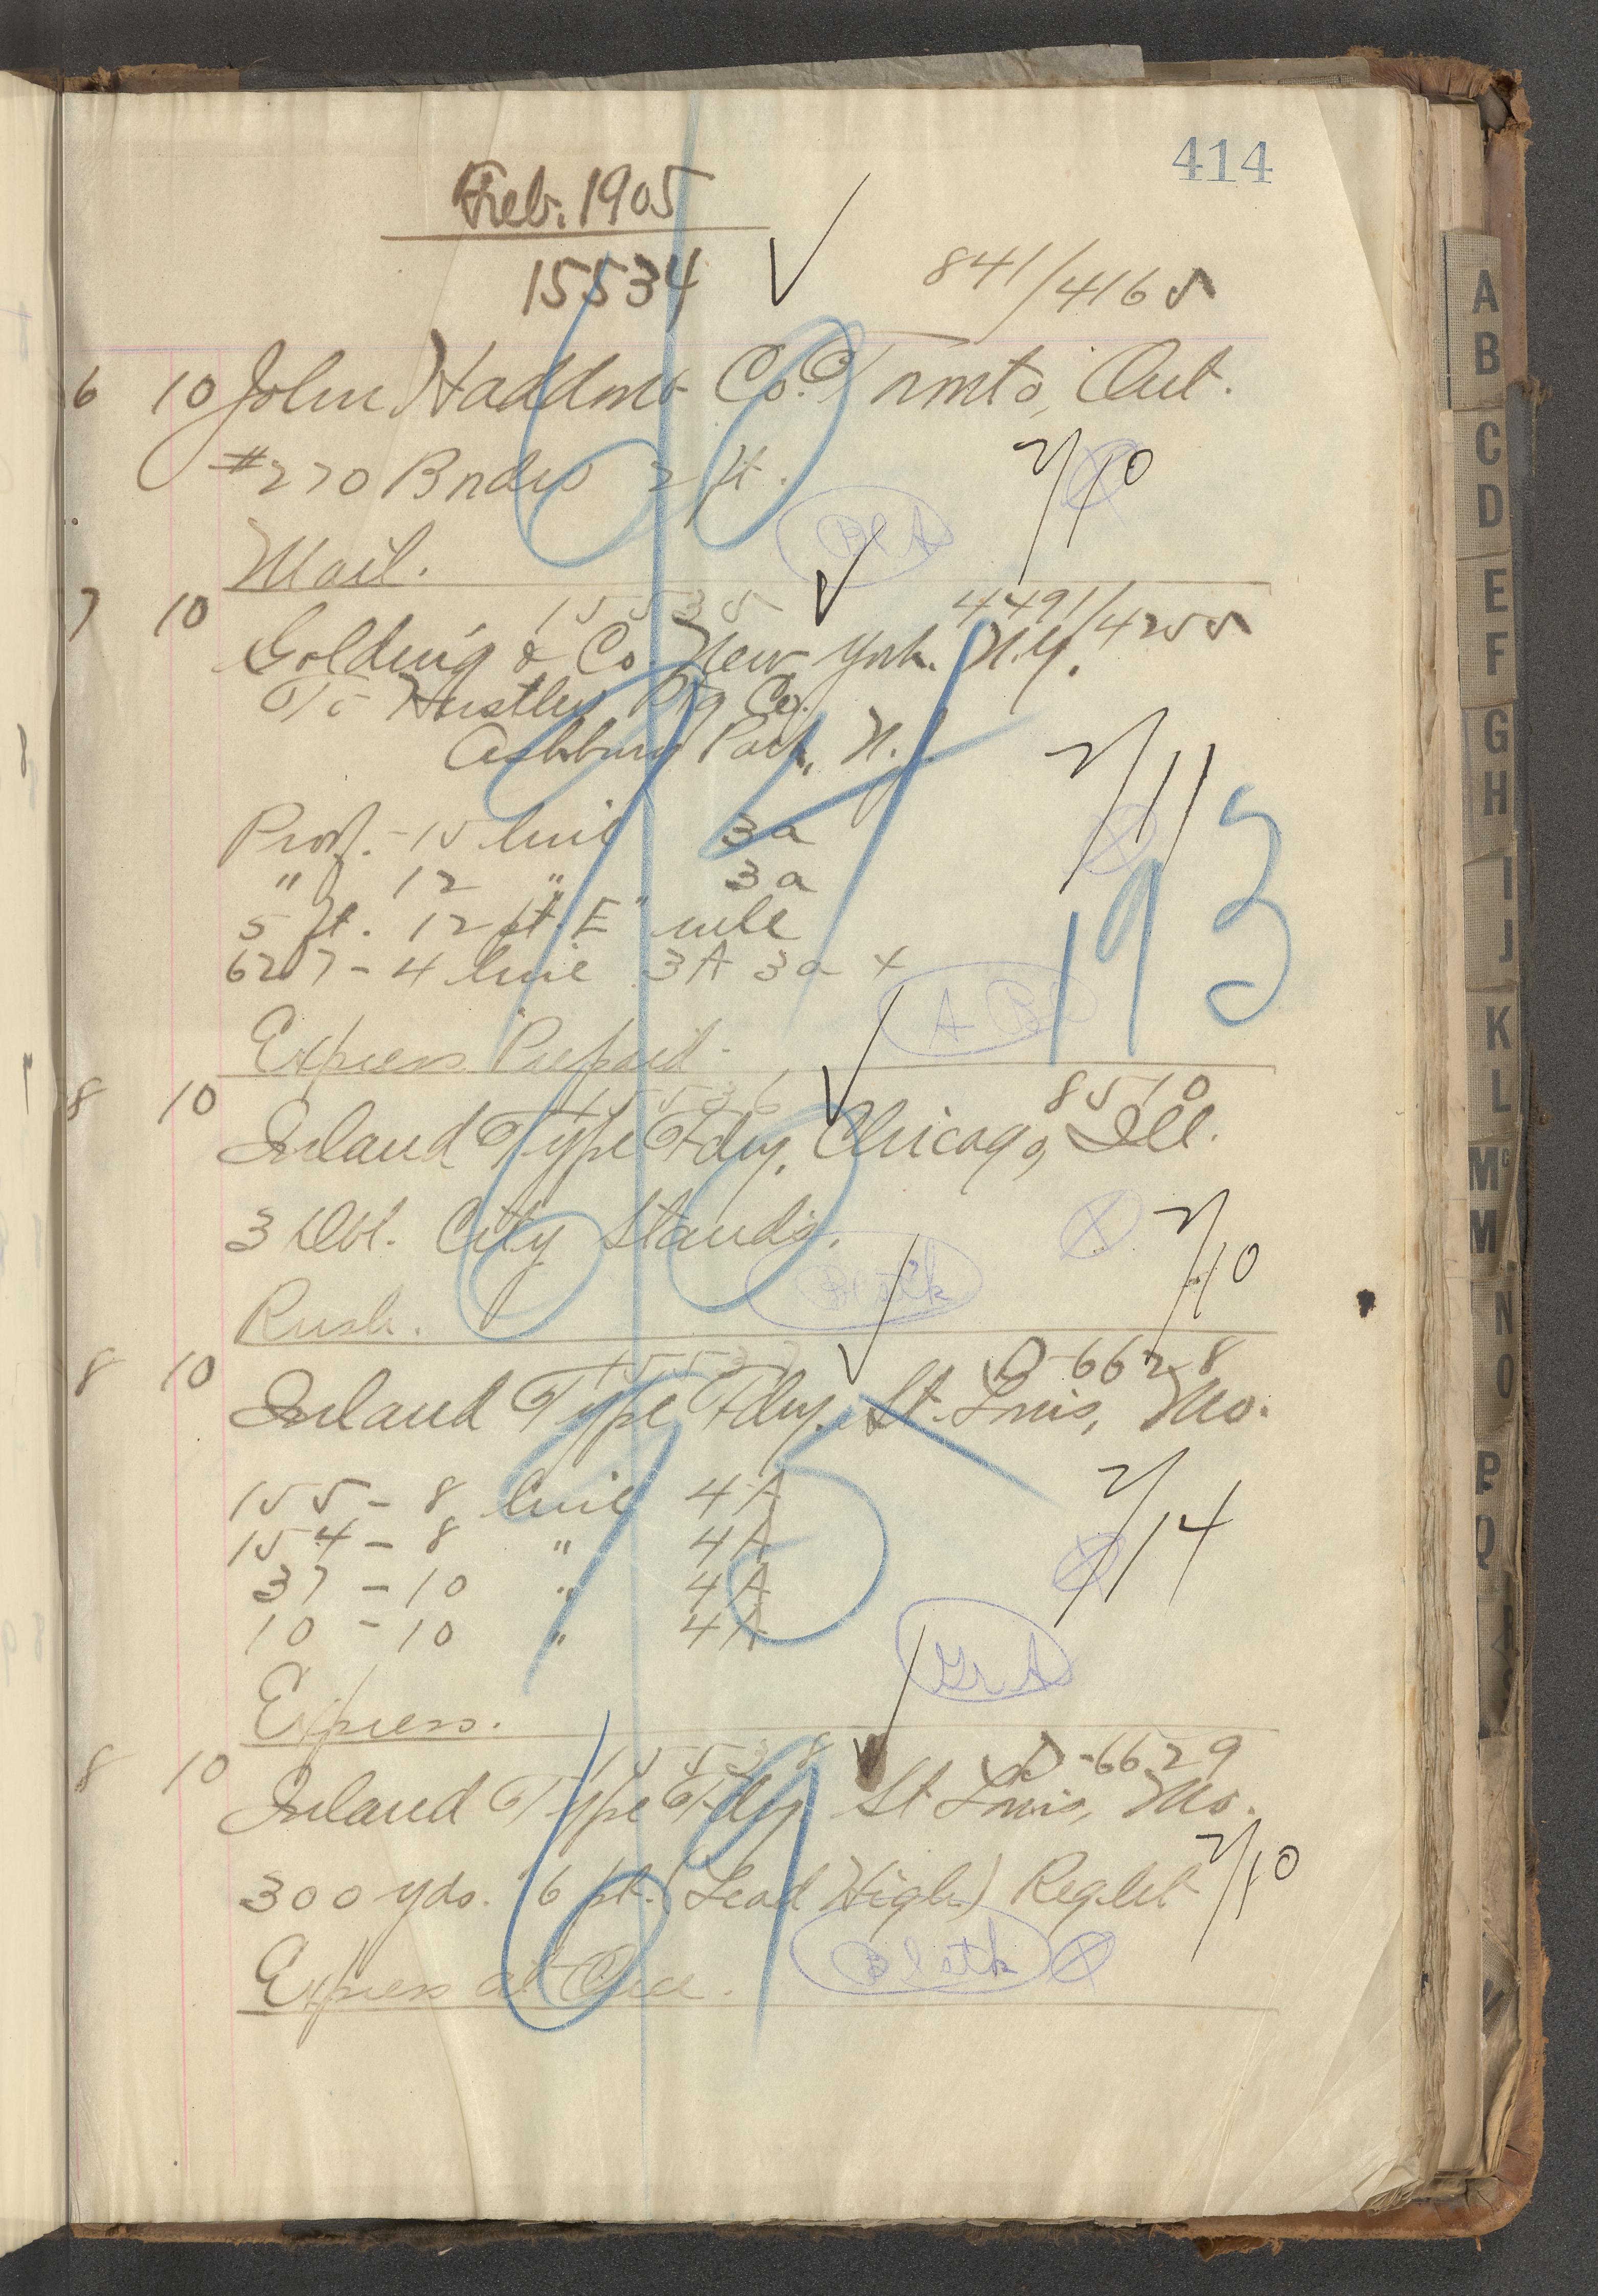 414
Feb. 1905
15534
841/4165
6 10 John Haddon & Co. Toronto, Ont.
#270 Border 2 ft.
2/10
Bl A
Mail.
15535
4491/4255
7 10 Golding & Co. New York. N.Y.
To Hustler Ptg Co.
Ashbury Park, N.J.
2/11
Prof. - 15 line 3a
" 12 " 3a
193
5 ft. 12 pt. "E" rule
6207 - 4 line 3A 3a
A Bl
Express Prepaid.
15536
8510
8 10 Inland Type Fdry, Chicago, Ill.
3 Dbl. City Stands.
2/10
Rush.
1553
D-6628
8 10 Inland Type Fdry. St. Louis, Mo.
155 - 8 line 4A
154 - 8 " 4A
2/14
37 - 10 " 4A
10 - 10 " 4A
Gr A
Express.
15538
D-6629
8 10 Inland Type Fdry St Louis, Mo.
2/10
300 yds. 6 pt. (Lead High) Reglet
Express at Once.
A
B
C
D
E
F
G
H
I
J
K
L
Mc
M
N
O
P
Q